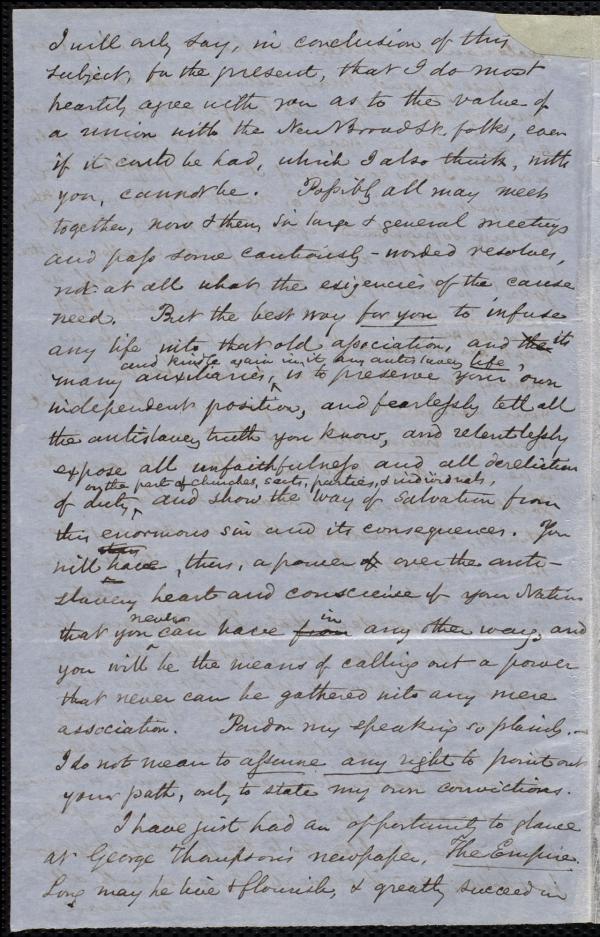 I will only say, in conclusion of this
subject, for the present, that I do most
heartily agree with you as to the value of
a union with the New Broad St. folks, even
if it could be had, which I also think, with
you, cannot be. Possibly all may meet
together, now & then, in large & general meetings
and pass some cautiously-worded resolves,
not at all what the exigencies of the cause
need. But the best way for you to infuse
any life into that old association, and the its
and kindle again in it, any antislavery life,
many auxiliaries, is to preserve your own
independent position, and fearlessly tell all
the antislavery truth you know, and relentlessly
expose all unfaithfulness and all dereliction
on the part of churches, sects, parties, & individuals,
of duty, and show the way of salvation from
this enormous sin and its consequences. You
will have, thus, a power of over the anti-
slavery heart and conscience of your Nation
never in
that you can have from any other way, and
you will be the means of calling out a power
that never can be gathered into any mere
association. Pardon my speaking so plainly.
I do not mean to assume any right to point out
your path, only to state my own convictions.
I have just had an opportunity to glance
at George Thompson's newspaper, The Empire.
Long may he live & flourish, & greatly succeed in